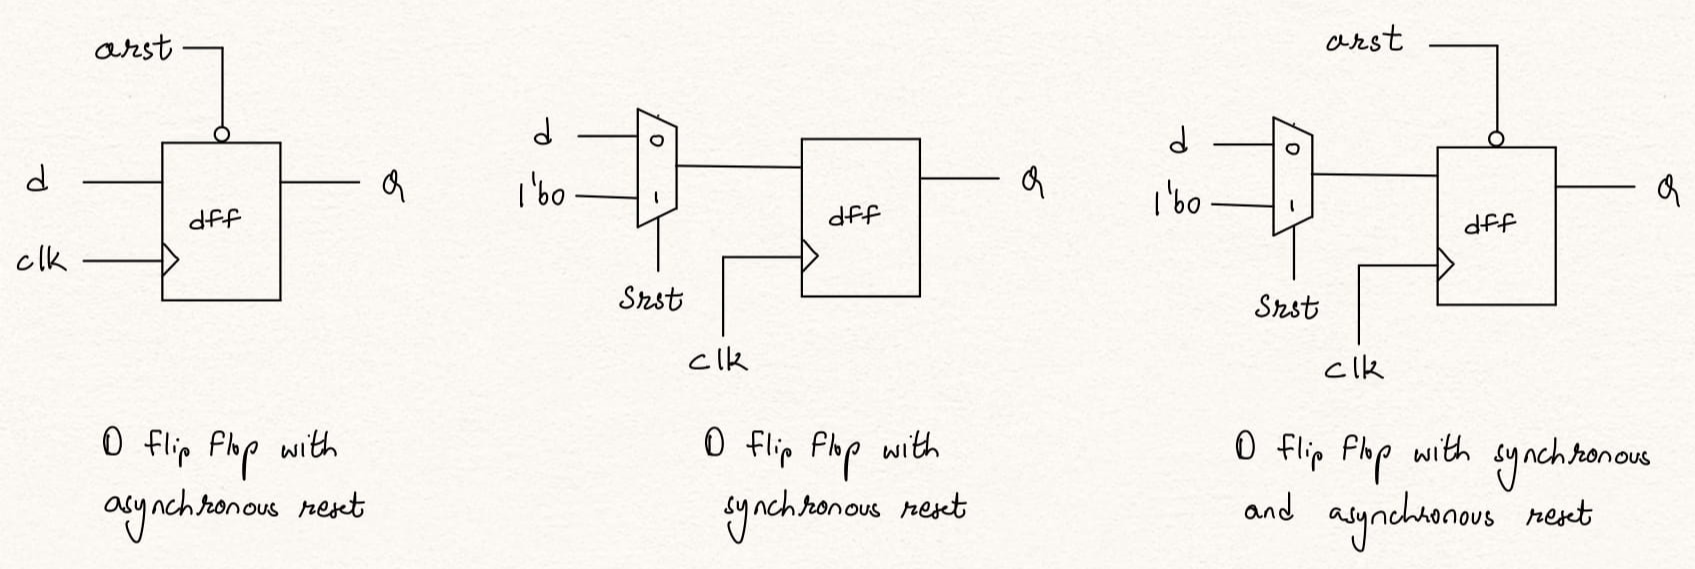 arst
d
clk
dff
Q
D flip flop with
asynchronous reset
d
1'b0
0
1
srst
clk
dff
Q
D flip flop with
synchronous reset
arst
d
1'b0
0
1
srst
clk
dff
Q
D flip flop with synchronous
and asynchronous reset